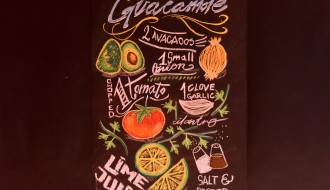 Guacamole
2 AVACADOS
1 Small
Onion
CHOPPED
1 Tomato
1 CLOVE
GARLIC
cilantro
LIME
JUICE
SALT &
PEPPER